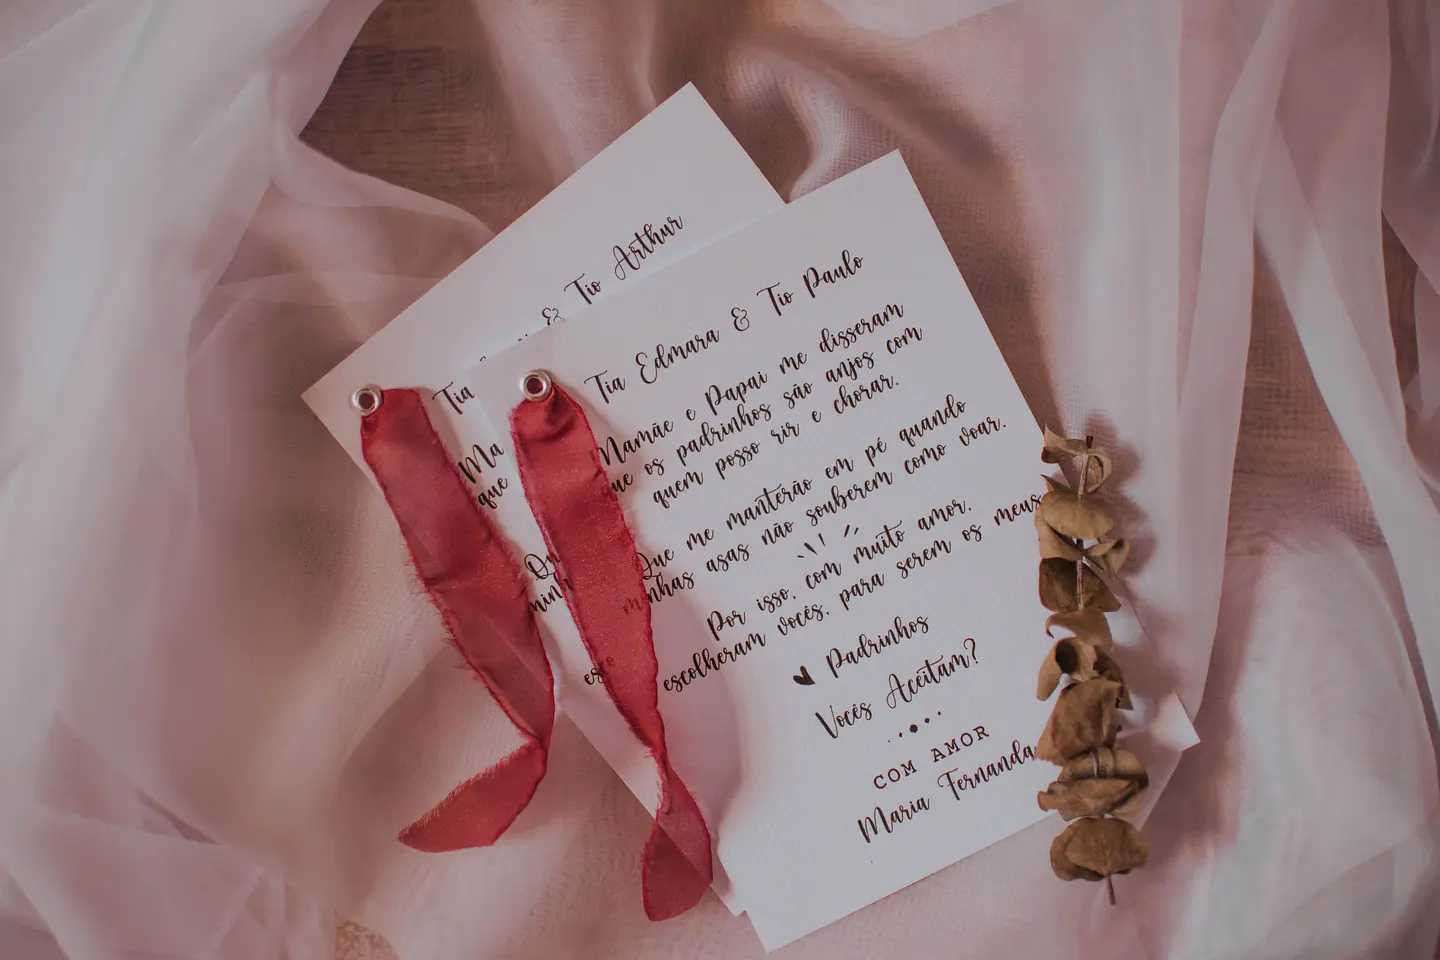 Tio Arthur
&
Tia
Ma
que
Qu
minh
esco
Tia Edmara & Tio Paulo
Mamãe e Papai me disseram
que os padrinhos são anjos com
quem posso rir e chorar.
Que me manterão em pé quando
minhas asas não souberem como voar.
Por isso, com muito amor,
escolheram vocês, para serem os meus
Padrinhos
Vocês Aceitam?
COM AMOR
Maria Fernanda